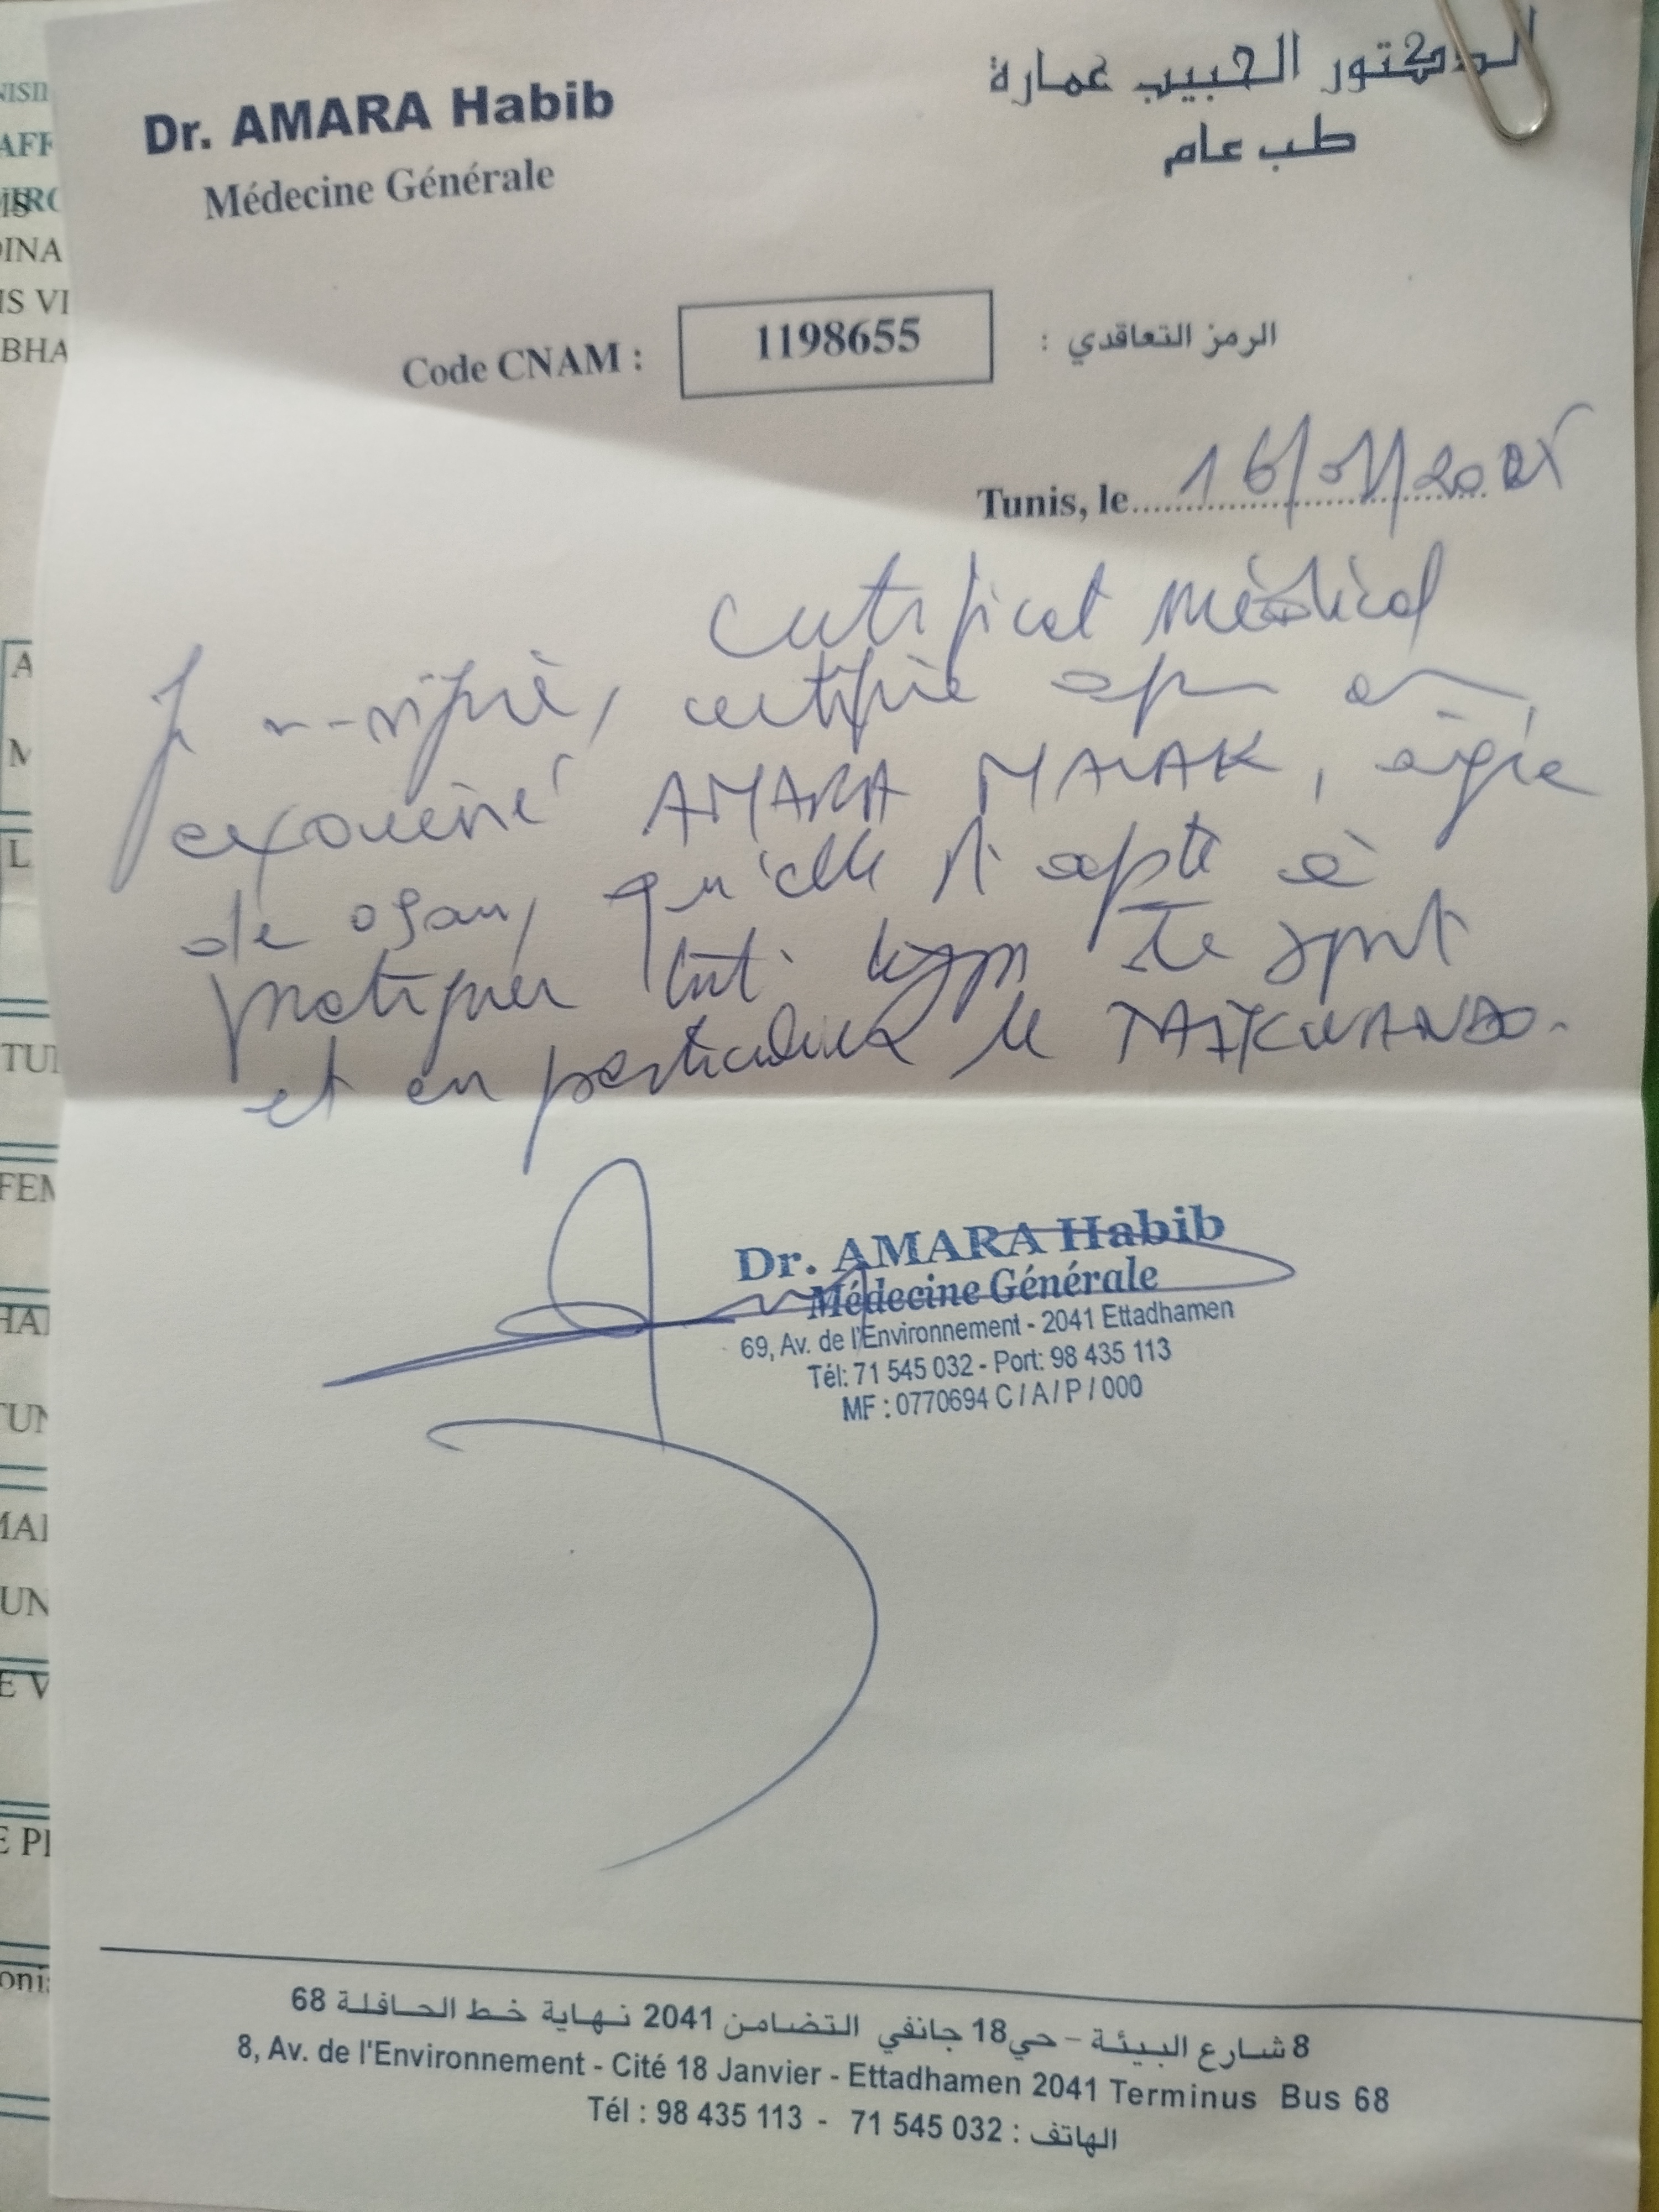 Dr. AMARA Habib
Médecine Générale
الدكتور الحبيب عمارة
طب عام
Code CNAM : 1198655 الرمز التعاقدي :
Tunis, le 16/01/20
Certificat Médical
Je certifie
examiné AMARA MALAK, agée
de 09 ans, qu'elle apte à
pratiquer tout de sport
et en particulier le
Dr. AMARA Habib
Médecine Générale
69, Av. de l'Environnement - 2041 Ettadhamen
Tél: 71 545 032 - Port: 98 435 113
MF : 0770694 C / A / P / 000
8 شارع البيئة - حي 18 جانفي التضامن 2041 نهاية خط الحافلة 68
8, Av. de l'Environnement - Cité 18 Janvier - Ettadhamen 2041 Terminus Bus 68
Tél : 98 435 113 - 71 545 032 : الهاتف
AFF
DINA
IS VI
BHA
A
M
L
TUI
FEM
HAI
TUN
MAI
UN
E V
E PI
oni